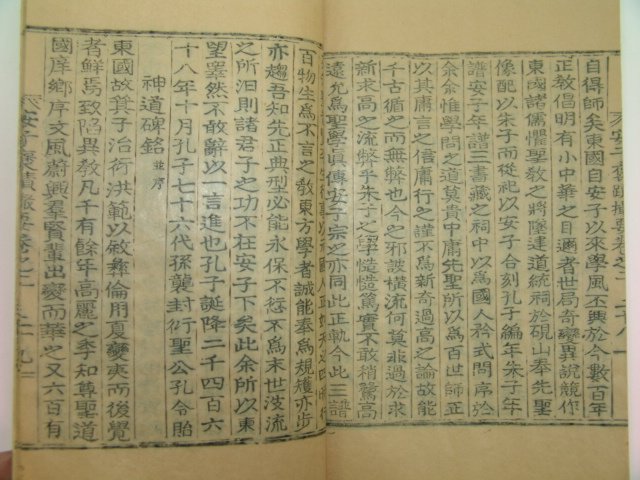 自得師矣東國自安子以來學風丕興於今數百年
正教倡明有小中華之目邇者世局奇變異說競作
東國諸儒懼聖教之將墜建道統祠於硯山奉先聖
像配以朱子而從祀以安子合刻孔子編年朱子年
譜安子年譜三書藏之祠中以爲國人矜式問序於
余余惟學問之道莫貴中庸先聖所以爲百世師正
以其庸言之信庸行之謹不爲新奇過高之論故能
千古循之而無弊也今之邪詖橫流何莫非過於求
新求高之流弊乎朱子之謹慥慥篤實不敢稍驚高
遠允爲聖學眞傳安子宗之亦同此正軌今此三譜
百物生焉不言之教東方學者誠能奉爲規矩亦步
亦趨吾知先正典型必能永保不愆不爲末世波流
之所汩則諸君子之功不在安子下矣此余所以東
望睪然不敢辭以一言進也孔子誕降二千四百六
十八年十月孔子七十六代孫襲封衍聖公孔令貽
神道碑銘 並序
東國故箕子治衍洪範以敘彝倫用夏變夷而後覺
者鮮焉致陷異教凡千有餘年高麗之季知尊聖道
國庠鄉序文風蔚興羣賢輩出變而華之又六百有